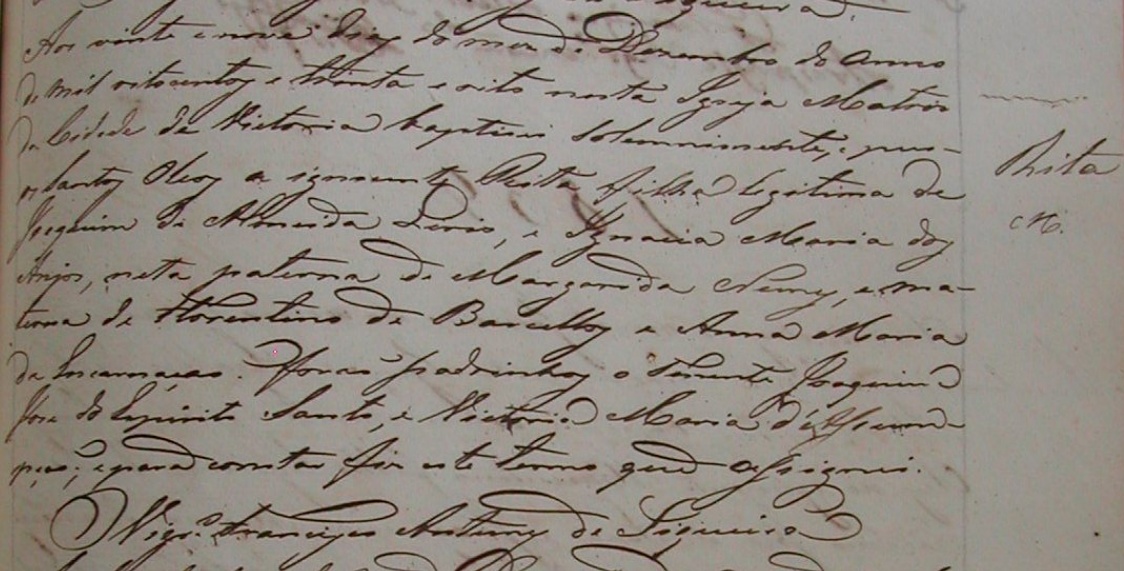 Siqueira.
Aos vinte e nove dias do mez de Dezembro do Anno
de mil oitocentos e trinta e oito nesta Igreja Matris
da Cidade da Victoria baptisei solemnimente, e pus
os Santos Oleos a ignocente Rita filha legitima de
Joaquim de Almeida, e Ignacia Maria dos
Anjos, neta paterna de Margarida Nunes, e ma-
terna de Florentino de Barcellos e Anna Maria
da Encarnação. Forão padrinhos o Tenente Joaquim
Jose do Espirito Santo, e Victoria Maria d'Assum-
pção; e para constar fiz este termo que assignei.
Vigr.º Francisco Antunes de Siqueira
Rita